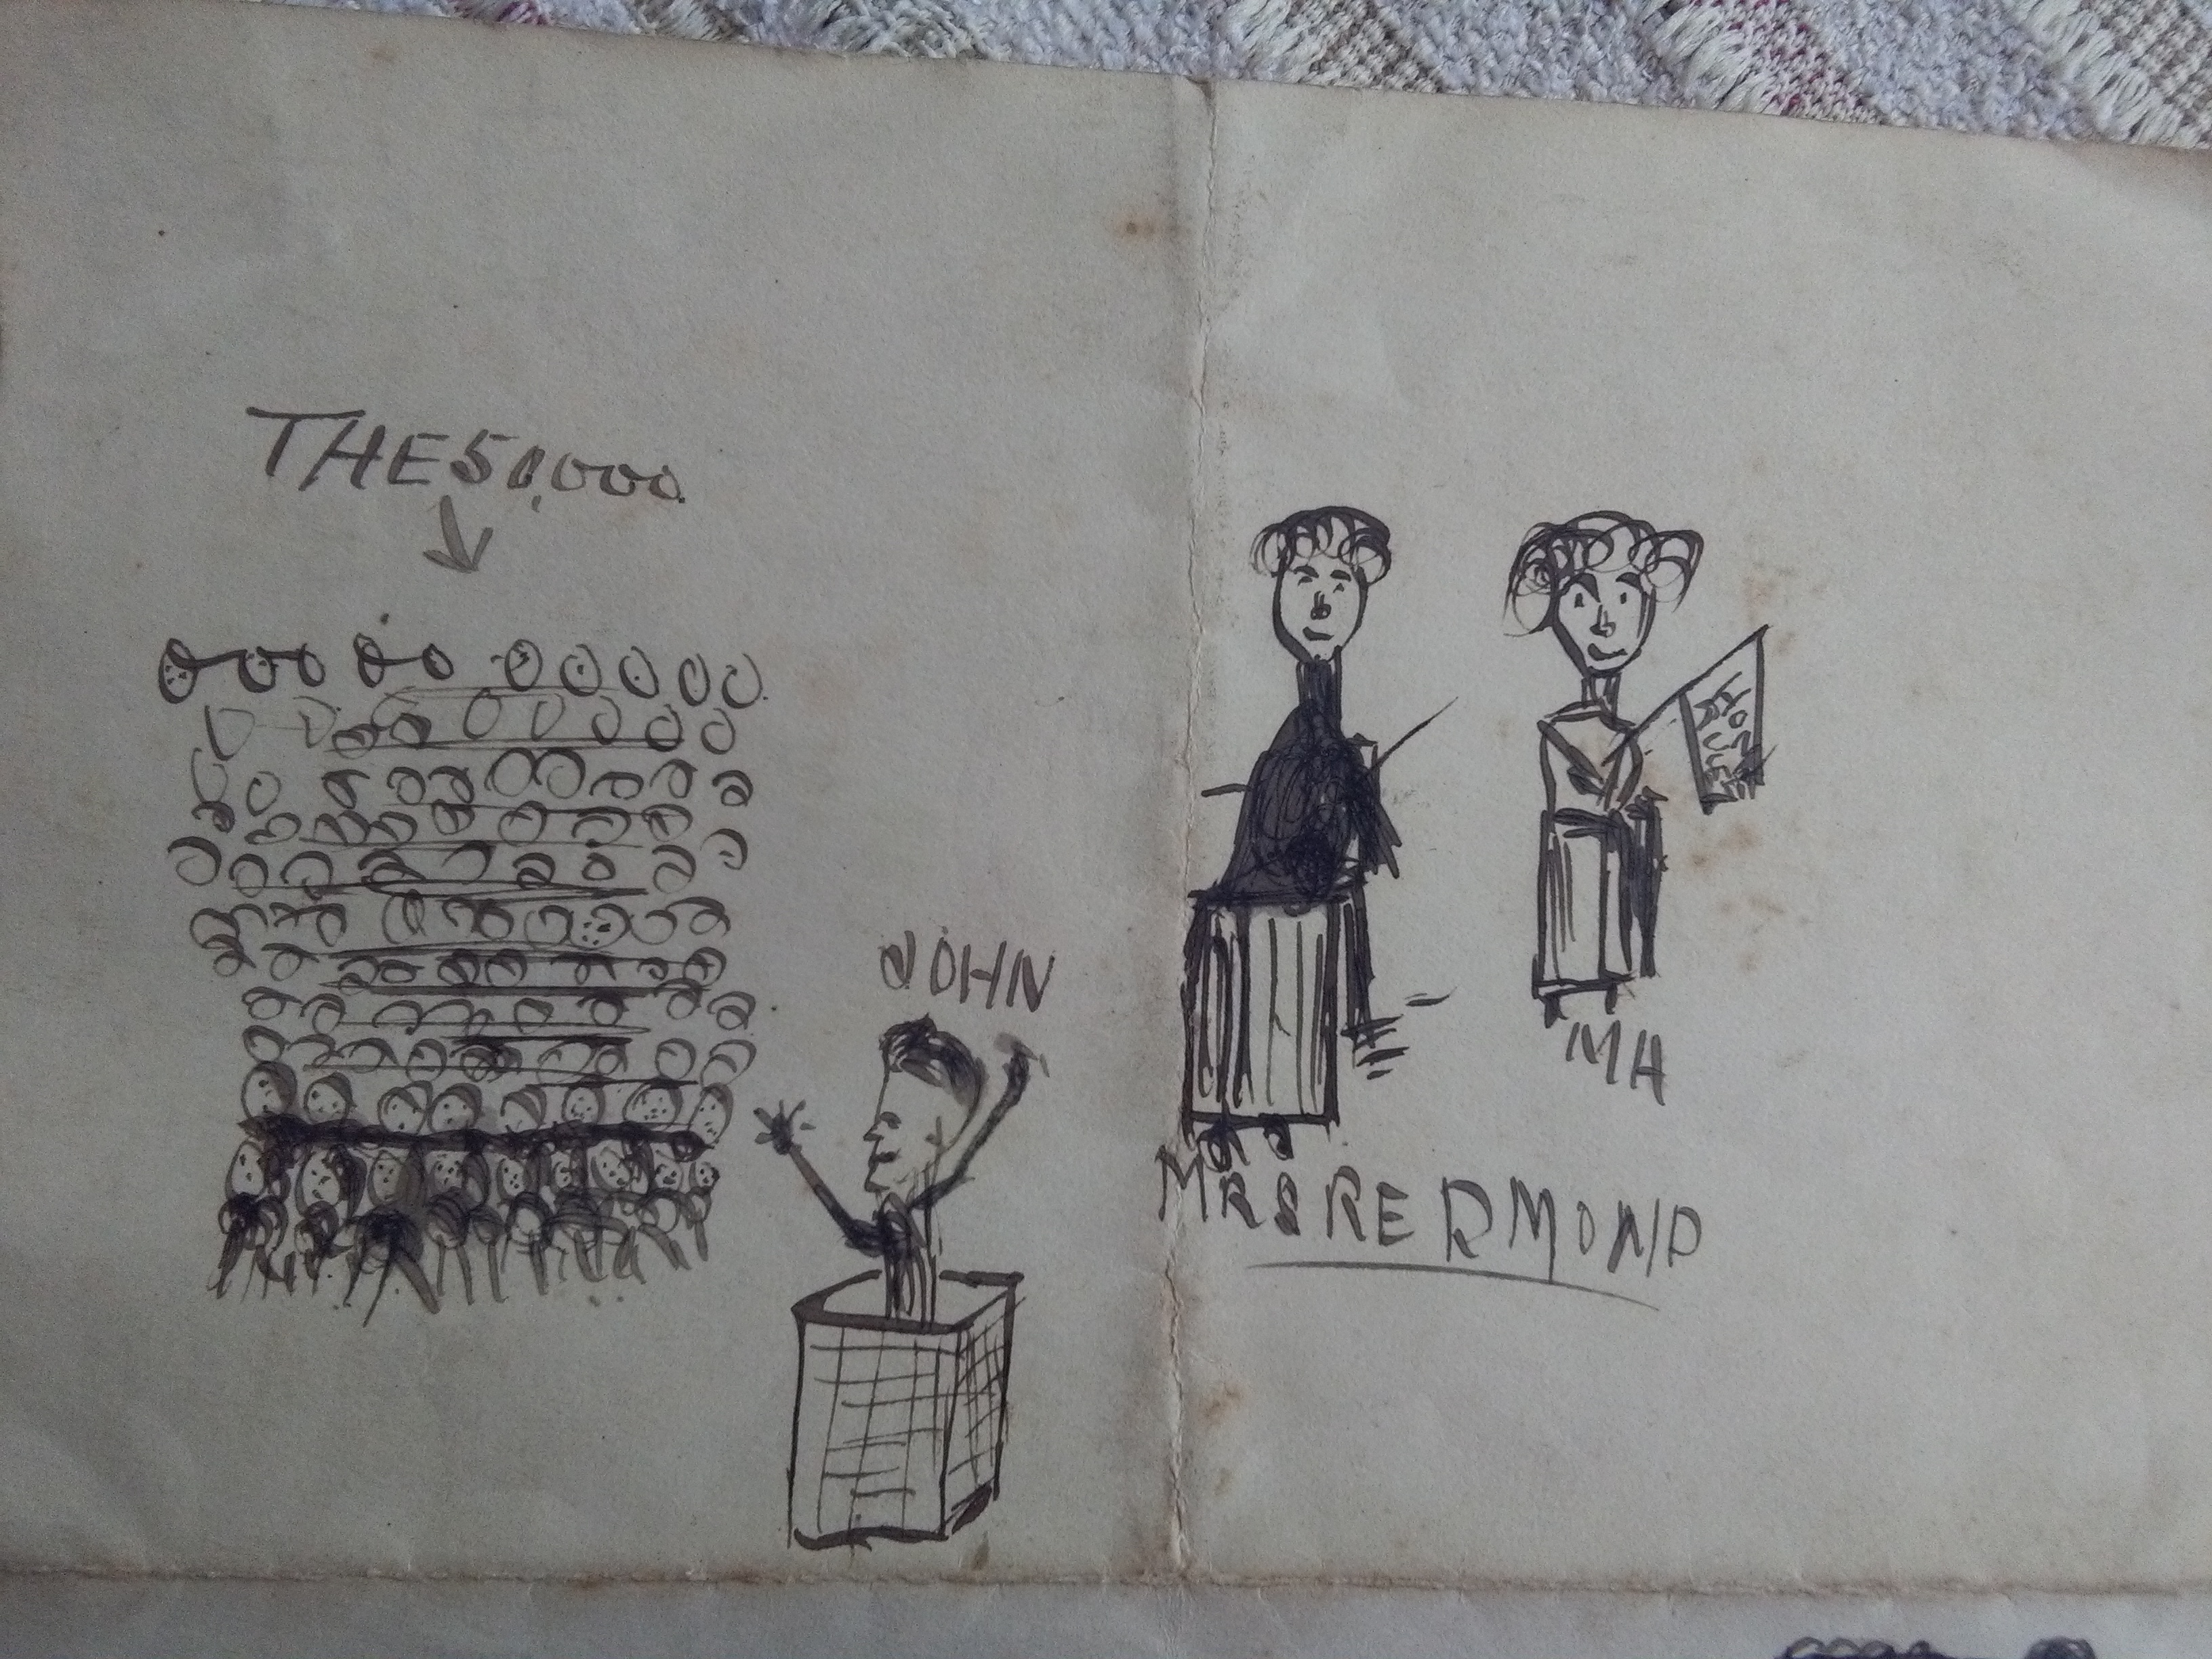 THE 50,000.
JOHN
MA
MRS REDMOND